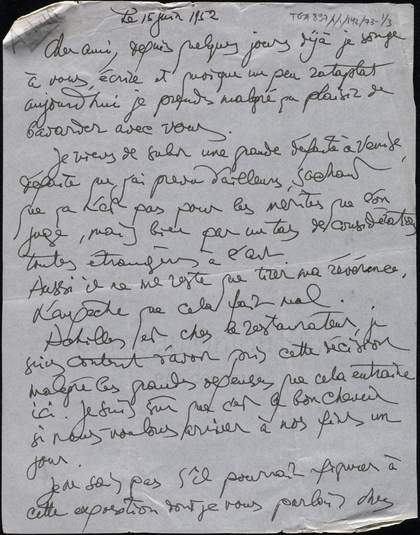 Le 15 juin 1952
TGA 897/1/1/142/73-1/3
Cher ami, depuis quelques jours déjà je songe
à vous écrire et quoique un peu rataplat
aujourd'hui je prends malgré ça plaisir de
bavarder avec vous.
Je viens de subir une grande défaite à Venise,
défaite que j'ai prévu d'ailleurs, sachant
que ça n'est pas pour les mérites que l'on
juge, mais bien par un tas de considérations
toutes étrangères à l'art.
Aussi il ne me reste que tirer ma révérence,
n'empêche que cela fait mal.
Achilles est chez le restaurateur, je
suis content d'avoir pris cette décision
malgré les grandes dépenses que cela entraine
ici. Je suis sûr que c'est le bon chemin
si nous voulons arriver à nos fins un
jour.
Je ne sais pas s'il pourrait figurer à
cette exposition dont je vous parlais chez